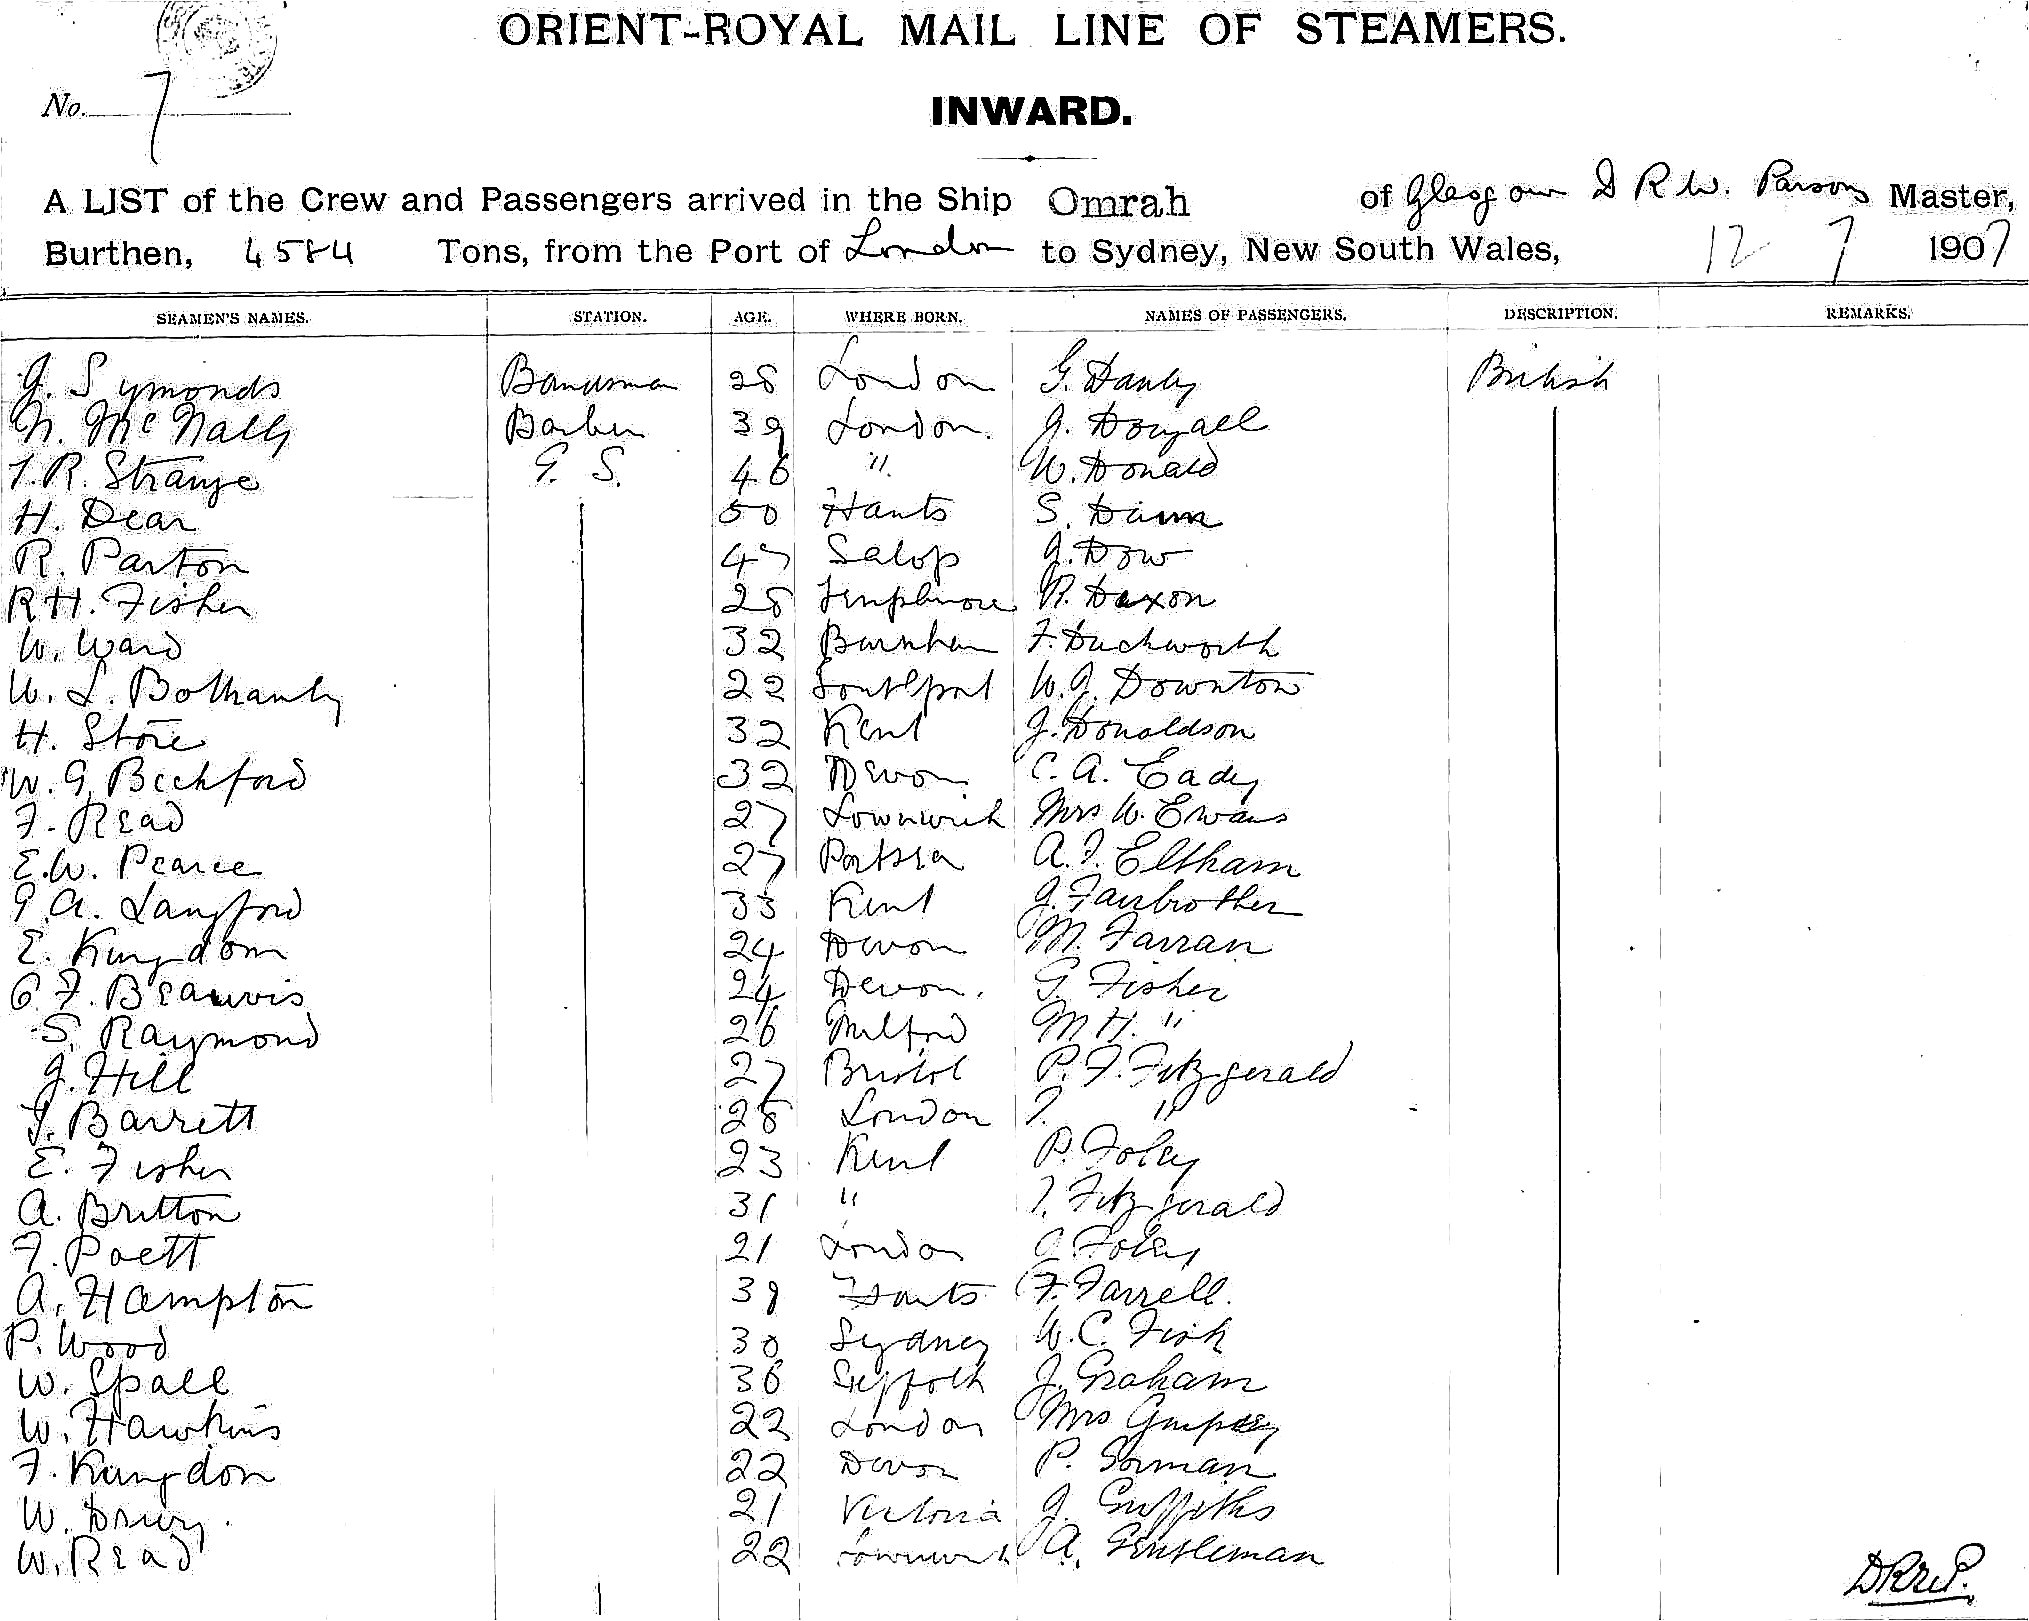 ORIENT-ROYAL MAIL LINE OF STEAMERS.
No. 7
INWARD.
A LIST of the Crew and Passengers arrived in the Ship Omrah of Glasgow D R W. Parsons Master,
Burthen, 4584 Tons, from the Port of London to Sydney, New South Wales, 12 7 1907
SEAMEN'S NAMES. STATION. AGE. WHERE BORN. NAMES OF PASSENGERS. DESCRIPTION. REMARKS.
J. Symonds Bandsman 28 London G. Danby British
N. McNally Barber 39 London. J. Dougall
T. R. Strange G. S. 46 " W. Donald
H. Dear 50 Hants S.
R. Parton 47 Salop J. Dow
R H. Fisher 28 R. Daxon
W. Ward 32 Burnham F. Duckworth
W. L. 22 Southport W. J. Downton
H. Stone 32 Kent J. Donaldson
W. G. Beckford 32 Devon C. A. Eady
F. Read 27 Mrs W. Ewans
E. W. Pearce 27 Portsea A. J. Eltham
G A. Langford 33 Kent J. Fairbrother
E. Kingdom 24 Devon M. Farran
C. F. Beauvis 24 Devon. G. Fisher
S. Raymond 26 Milford M H. "
J. Hill 27 Bristol P. F. Fitzgerald
J. Barrett 28 London T. "
E. Fisher 23 Kent P. Foley
A. Britton 31 " T. Fitzgerald
F. Poett 21 London J. Foley
A. Hampton 39 Hants F. Farrell.
P. Wood 30 Sydney W. C. Fisk
W. Spall 36 Suffolk J. Graham
W. Hawkins 22 London Mrs
F. Kingdon 22 Devon P. Gorman
W. Drury. 21 Victoria J. Griffiths
W. Read 22 A. Gentleman
DRWP.